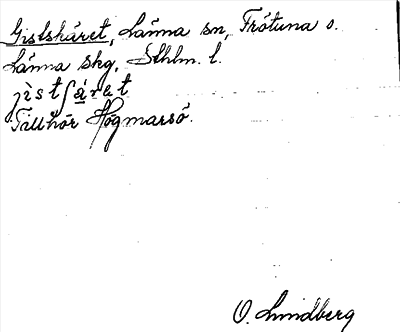 Gistskäret, Länna sn, Frötuna o.
Länna skg, Sthlm. l.
jistʃäret
Tillhör Högmarsö.
O. Lundberg